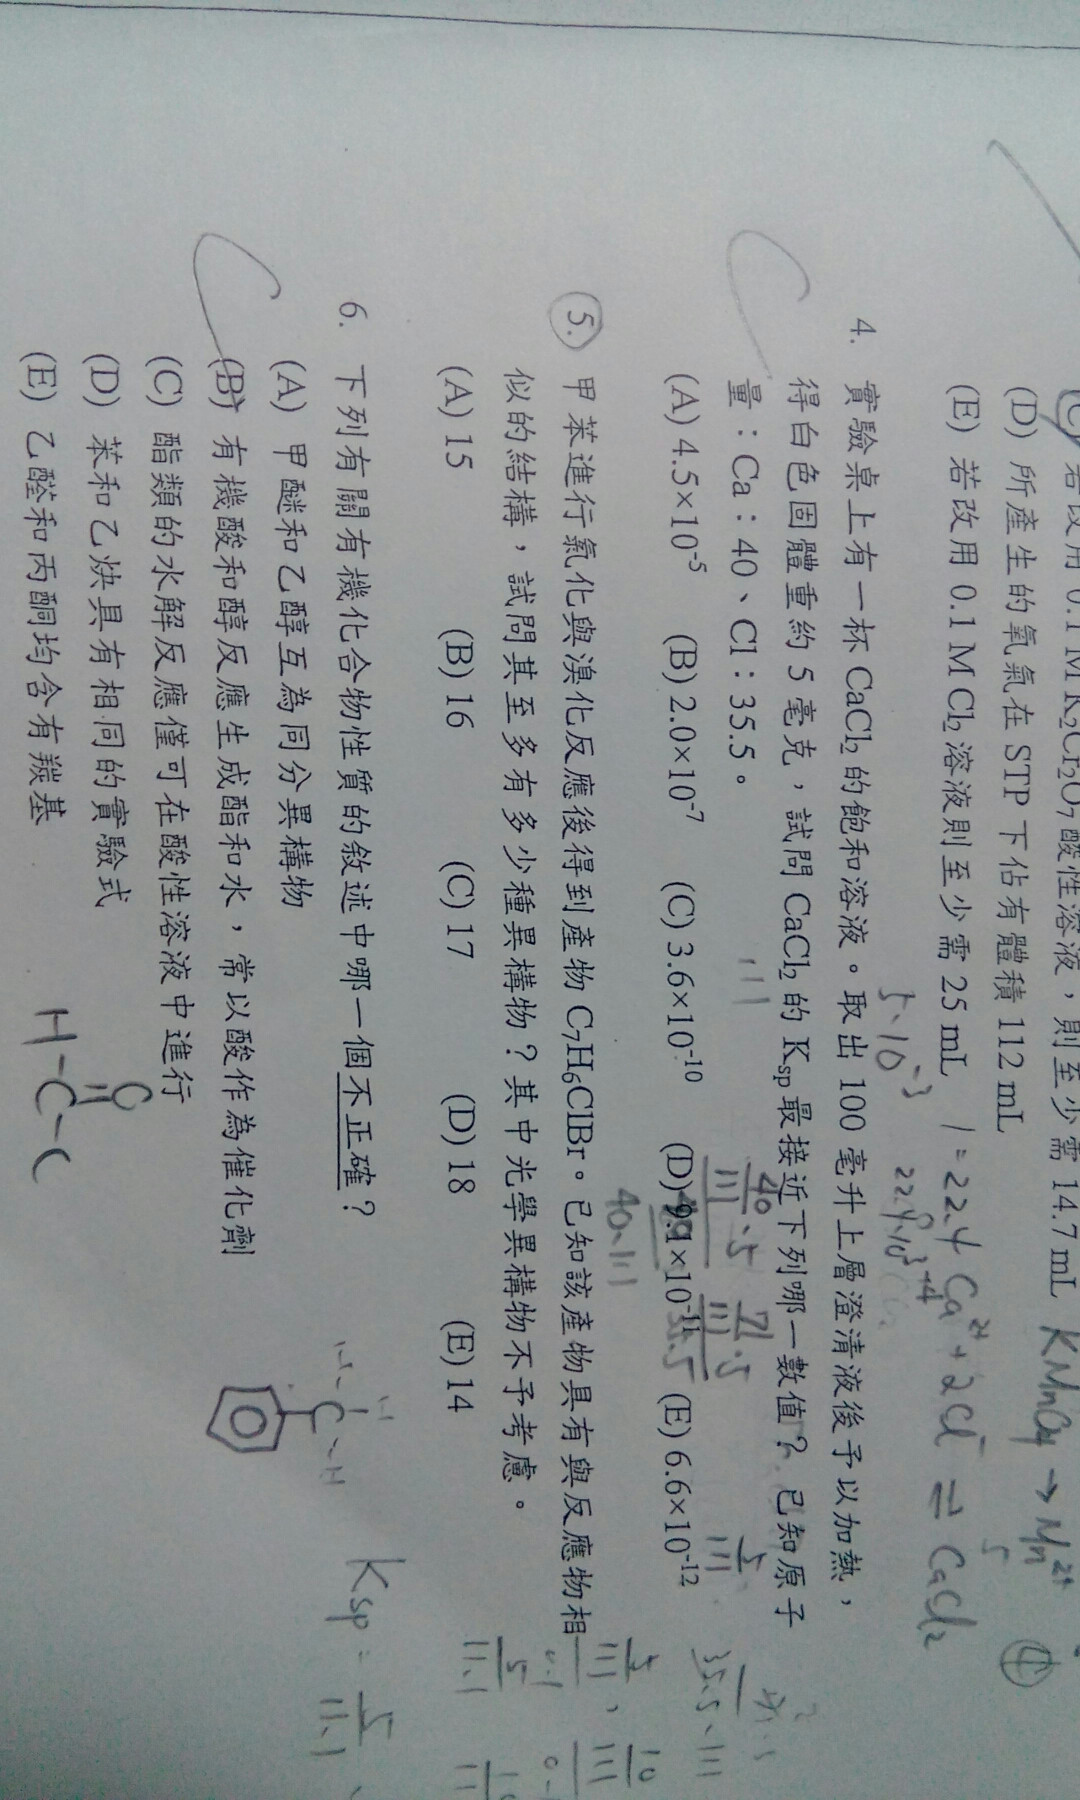 若改用 0.1 M K₂Cr₂O₇ 酸性溶液，則至少需 14.7 mL
(D) 所產生的氧氣在 STP 下佔有體積 112 mL
(E) 若改用 0.1 M Cl₂ 溶液則至少需 25 mL
KMnO₄ → Mn²⁺
5
④
1 = 22.4
Ca²⁺ + 2Cl⁻ ⇌ CaCl₂
5×10⁻³
4. 實驗桌上有一杯 CaCl₂ 的飽和溶液。取出 100 毫升上層澄清液後予以加熱，
得白色固體重約 5 毫克，試問 CaCl₂ 的 Ksp 最接近下列哪一數值？已知原子
量：Ca：40、Cl：35.5。
111
(A) 4.5×10⁻⁵ (B) 2.0×10⁻⁷ (C) 3.6×10⁻¹⁰ (D) 9.1×10⁻¹¹ (E) 6.6×10⁻¹²
5. 甲苯進行氯化與溴化反應後得到產物 C₇H₆ClBr。已知該產物具有與反應物相
似的結構，試問其至多有多少種異構物？其中光學異構物不予考慮。
(A) 15 (B) 16 (C) 17 (D) 18 (E) 14
6. 下列有關有機化合物性質的敘述中哪一個不正確？
(A) 甲醚和乙醇互為同分異構物
(B) 有機酸和醇反應生成酯和水，常以酸作為催化劑
(C) 酯類的水解反應僅可在酸性溶液中進行
(D) 苯和乙炔具有相同的實驗式
(E) 乙醛和丙酮均含有羰基
Ksp = 5
11.1